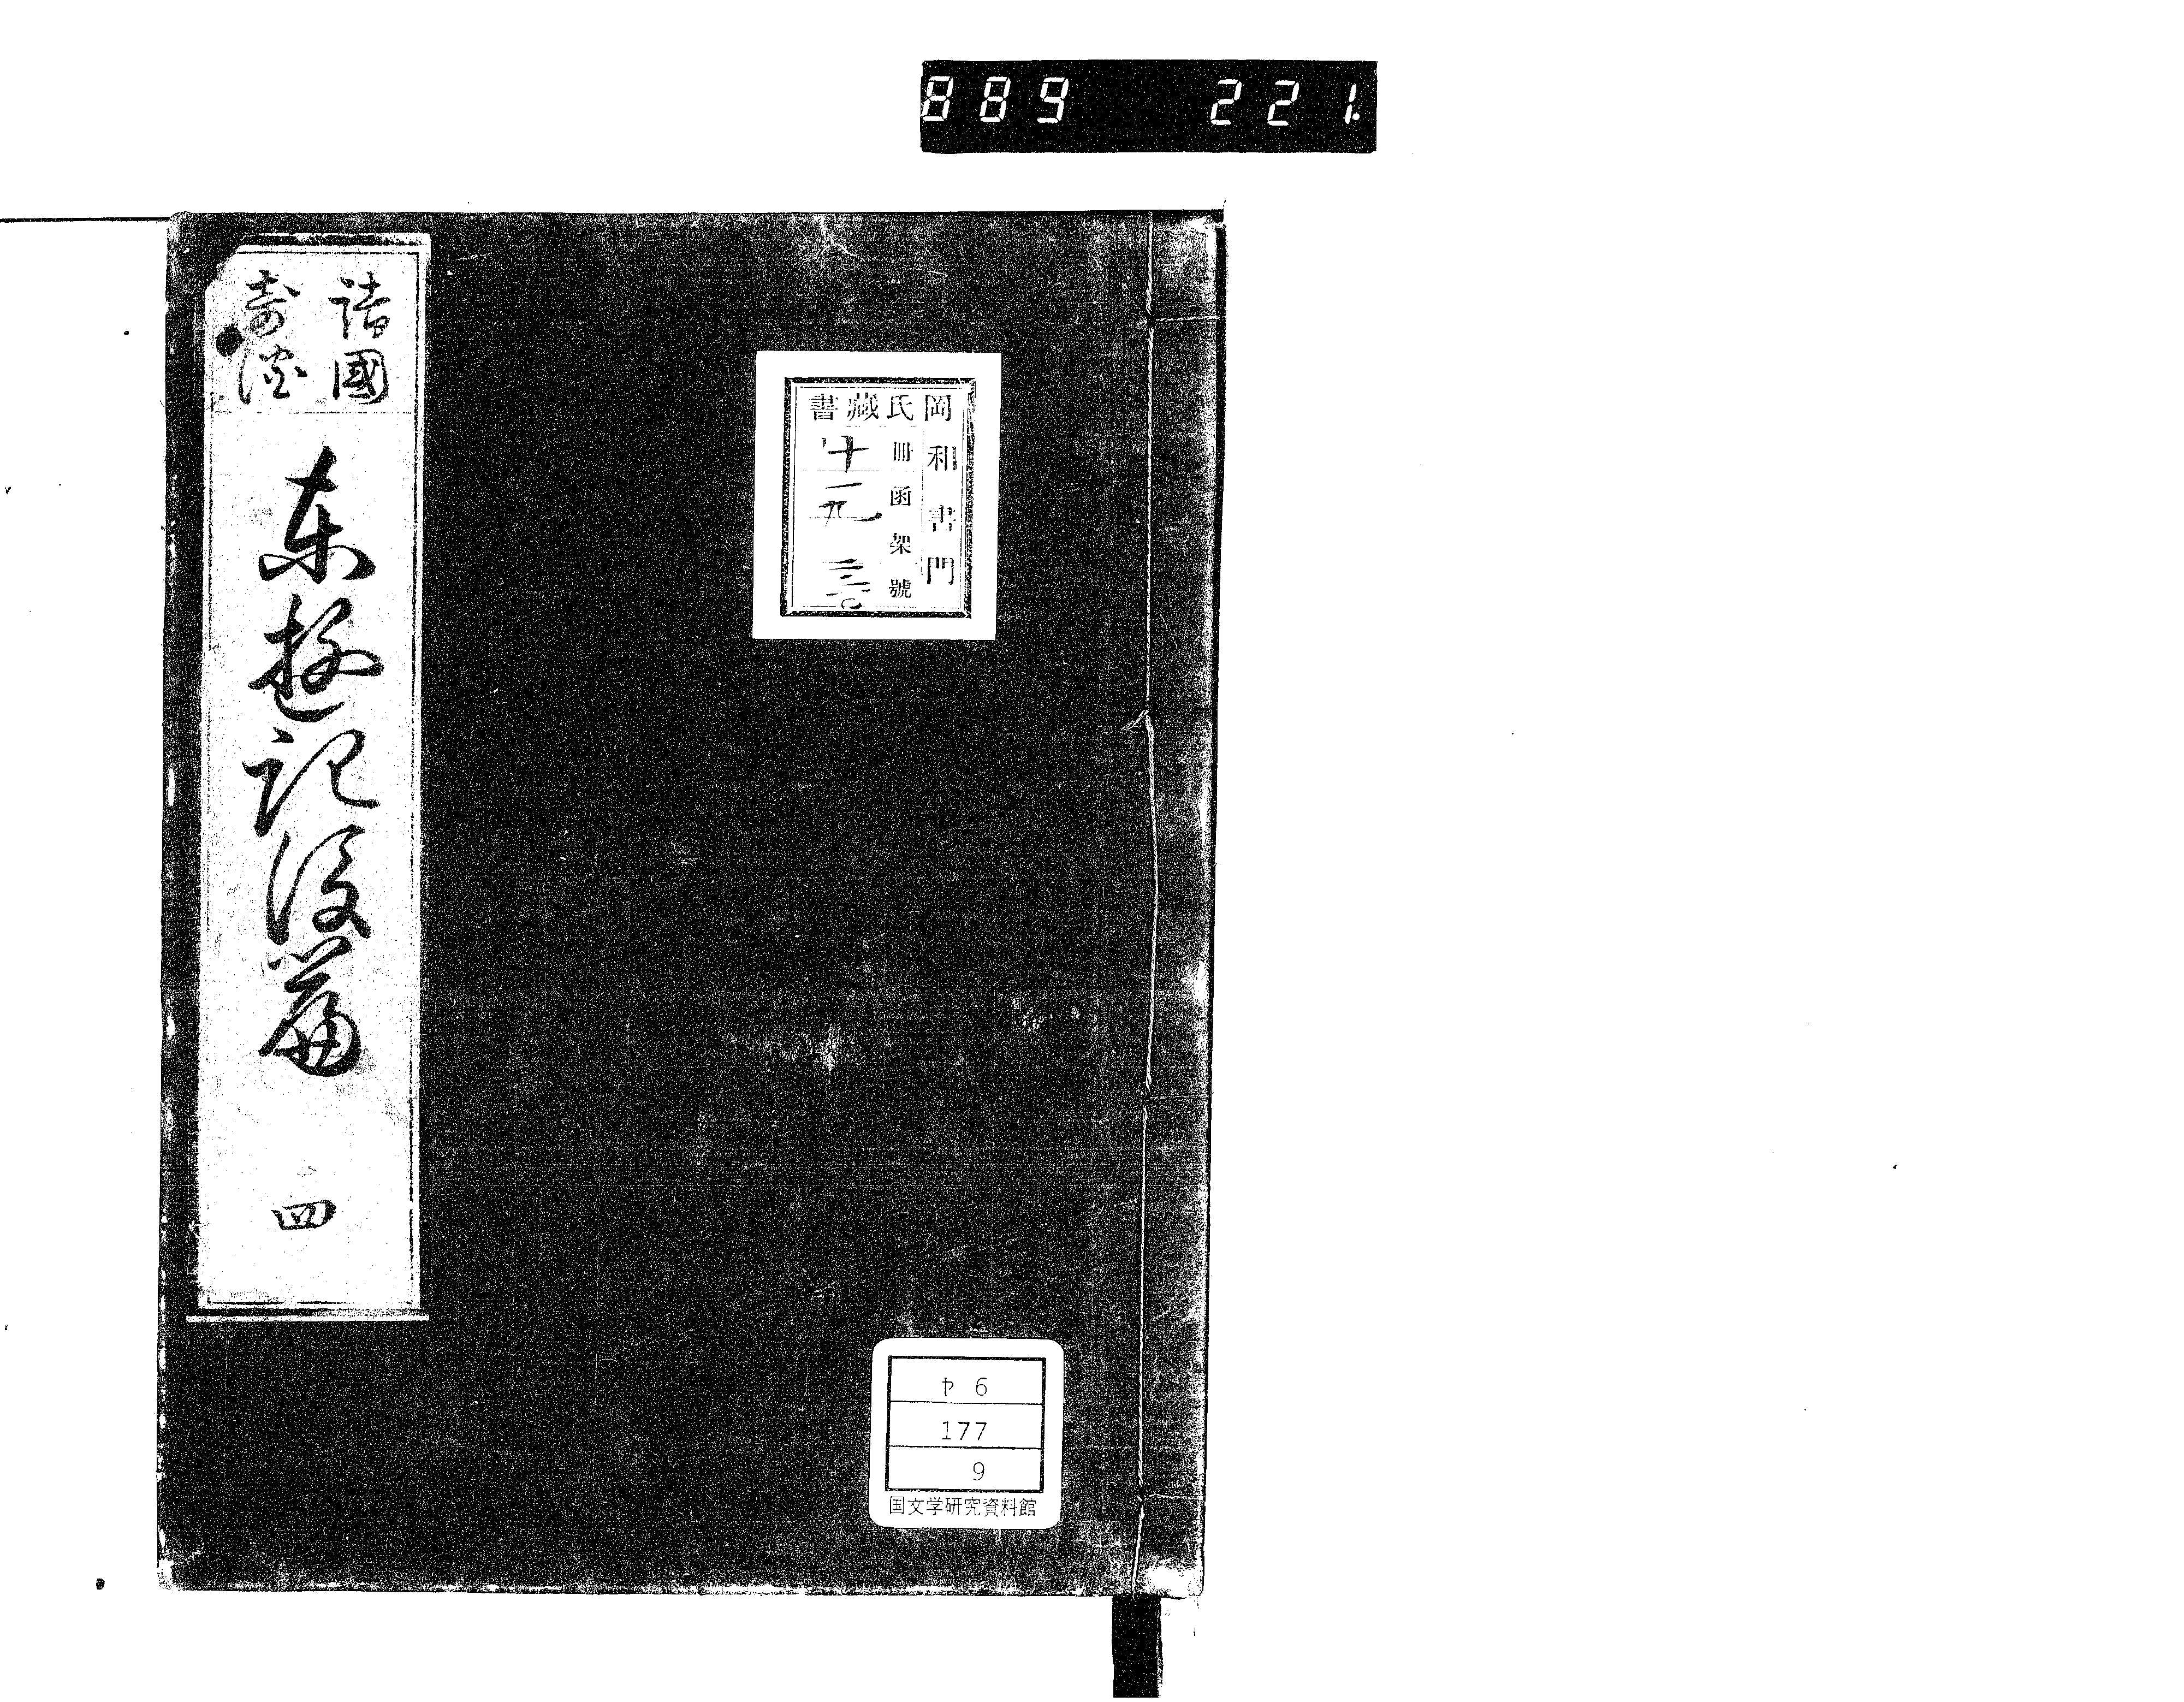 889 221.
諸國
奇談
東遊記後篇
四
岡氏藏書
和書門
冊函架號
十
ヤ6
177
9
国文学研究資料館